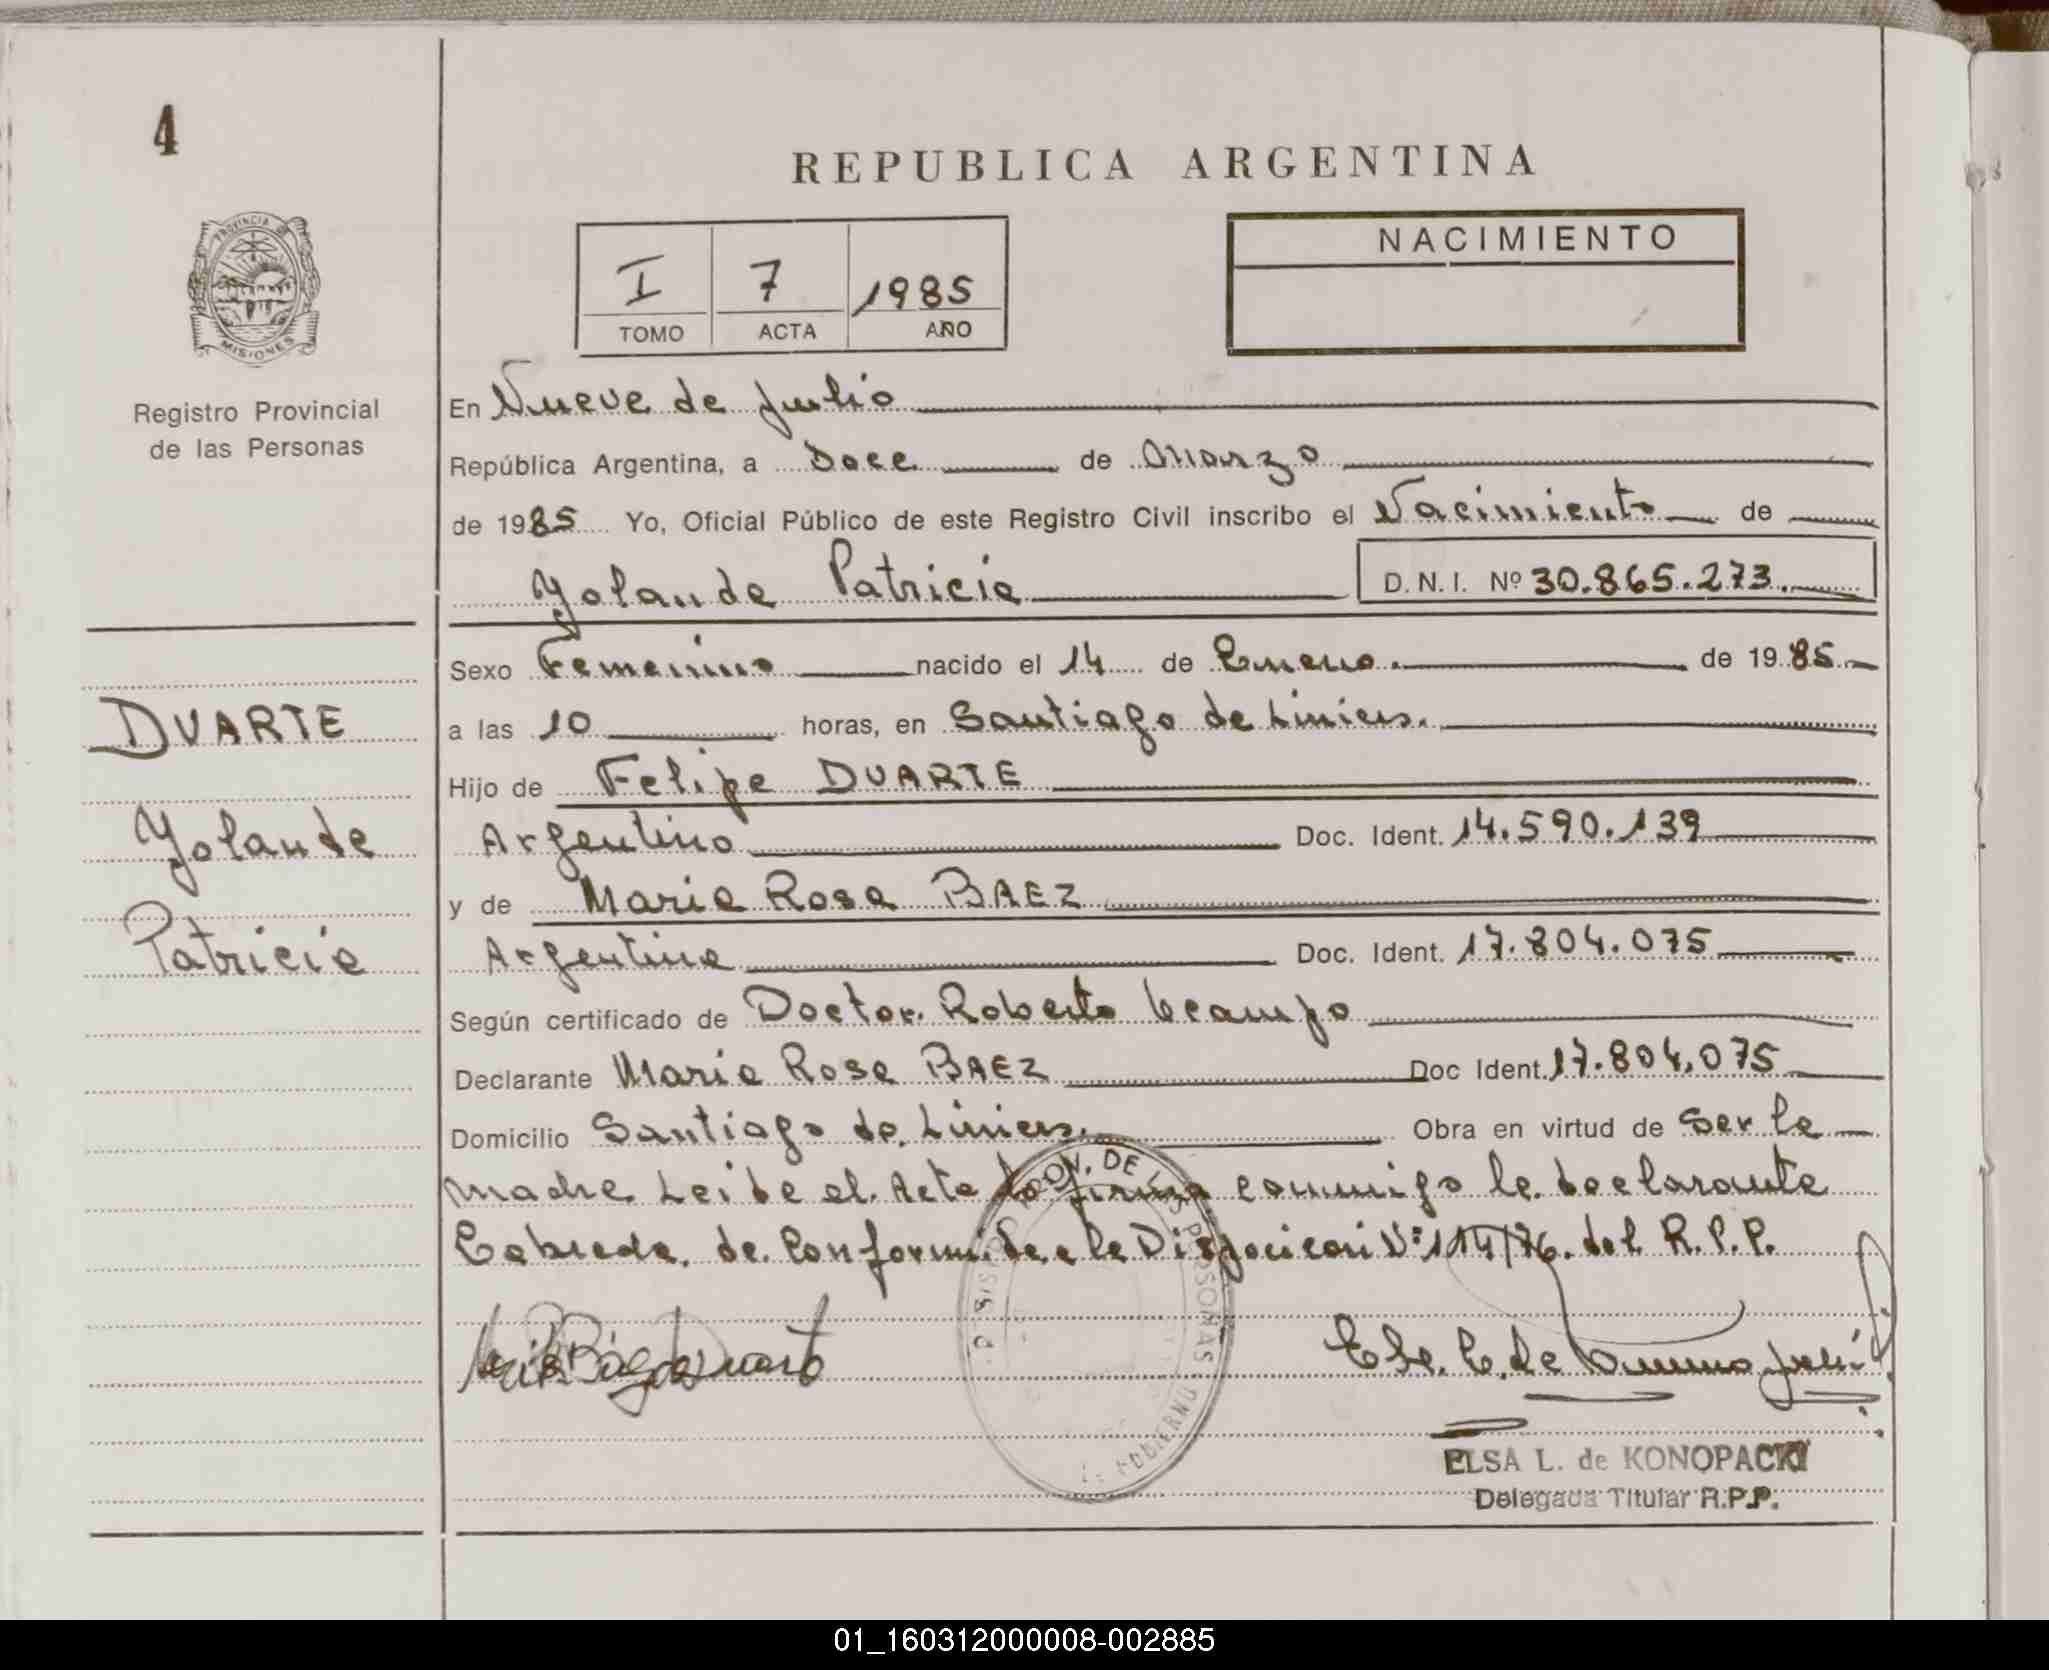 4
REPUBLICA ARGENTINA
PROVINCIA DE
MISIONES
Registro Provincial
de las Personas
I 7 1985
TOMO ACTA AÑO
NACIMIENTO
En Nueve de Julio
República Argentina, a Doce de Marzo
de 1985 Yo, Oficial Público de este Registro Civil inscribo el Nacimiento de
Yolanda Patricia D.N.I. Nº 30.865.273.
Sexo Femenino nacido el 14 de Enero. de 1985
a las 10 horas, en Santiago de Liniers.
Hijo de Felipe DUARTE
Argentino Doc. Ident. 14.590.139
y de Maria Rosa BAEZ
Argentina Doc. Ident. 17.804.075
Según certificado de Doctor. Roberto Ocampo
Declarante Maria Rosa BAEZ Doc Ident. 17.804.075
Domicilio Santiago de Liniers. Obra en virtud de Ser la
madre Leida el Acta la firma conmigo la declarante
Labrada de Conformi. de a la Disposicion Nº 114/76. del R.P.P.
DUARTE
Yolanda
Patricia
PROV. DE LAS PERSONAS
GOBIERNO
ELSA L. de KONOPACKI
Delegada Titular R.P.P.
01_160312000008-002885